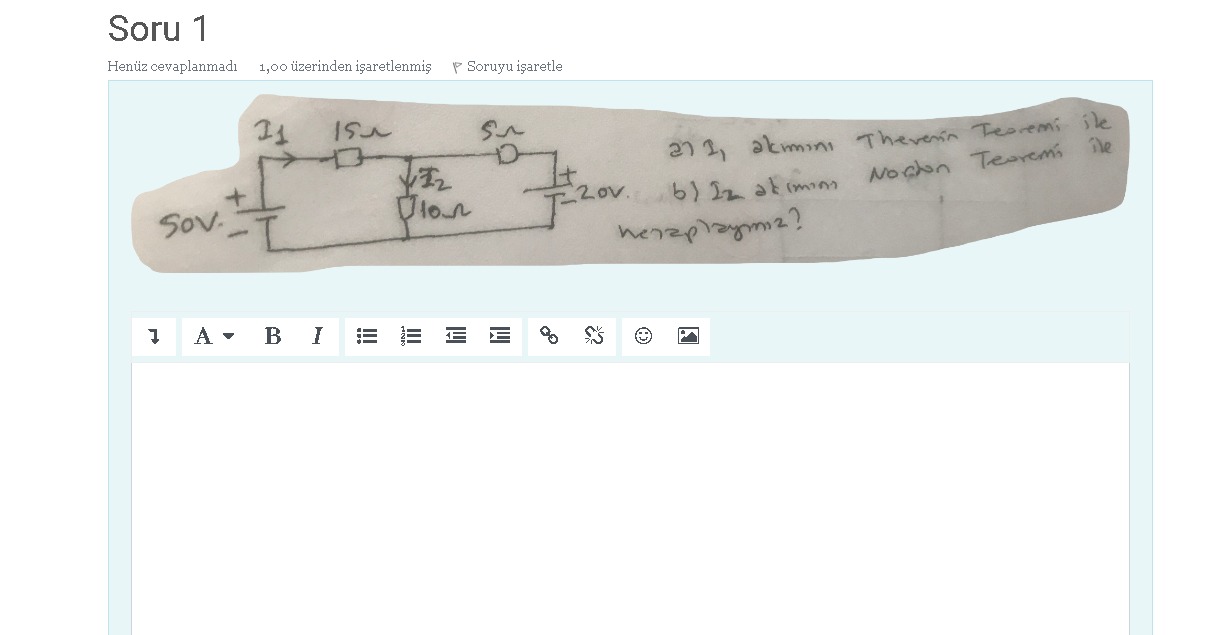 Soru 1
Henüz cevaplanmadı 1,00 üzerinden işaretlenmiş Soruyu işaretle
I1 15Ω 5Ω
a) I1 akımını Thevenin Teoremi ile
I2
10Ω
50V. + - + - 20V.
b) I2 akımını Norton Teoremi ile
hesaplayınız?
A B I